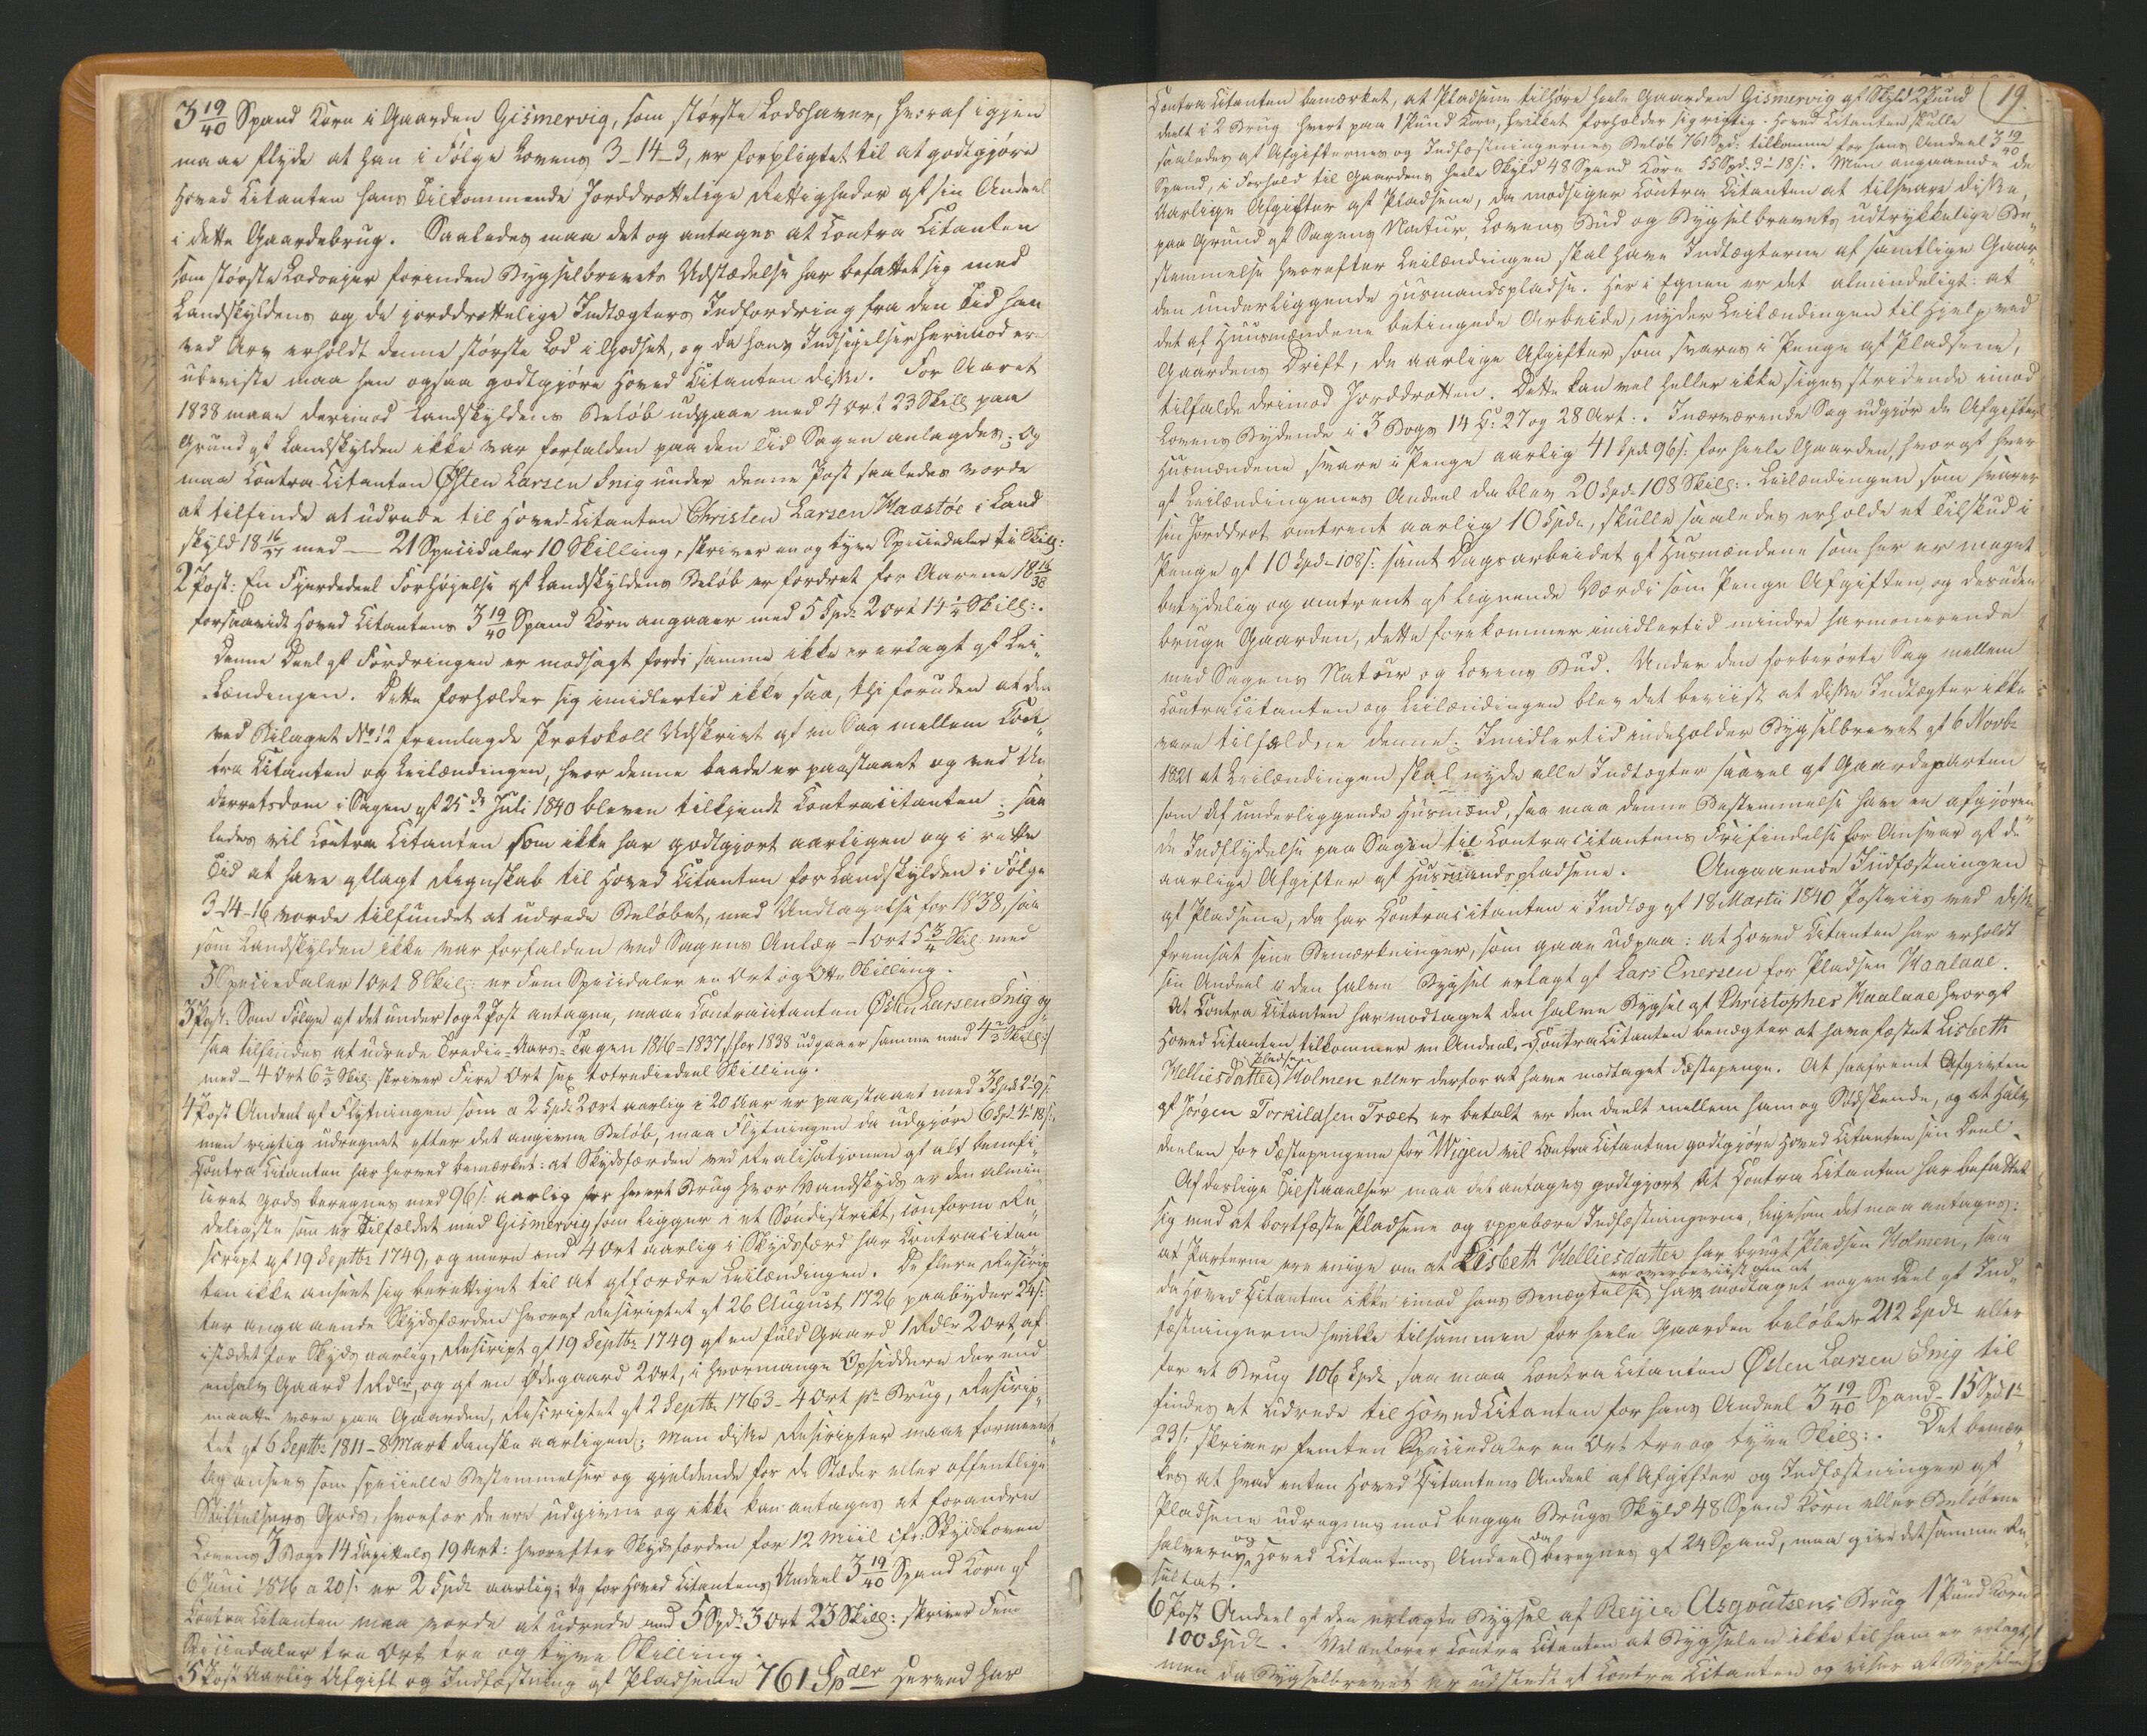 3 19/40 Spand Korn i Gaarden Gismervig, som største Lodshaver, hvoraf igjen
maae flyde at han i Følge Lovens 3-14-3, er forpligtet til at godtgjøre
Hoved Citanten hans Tilkommende Jorddrottelige Rettigheder af sin Andeel
i dette Gaardebrug. Saaledes maa det og antages at Contra Citanten
som største Lodseier forinden Bygselbrevets Udstædelse har befattet sig med
Landskyldens og de jorddrottelige Indtægters Indfordring fra den Tid han
ved Arv erholdt denne største Lod i Godset, og da hans Indsigelser herimod er
ubeviste maa han ogsaa godtgjøre Hoved Citanten disse. For Aaret
1838 maae derimod Landskyldens Beløb udgaae med 4 Ort 23 Skill paa
Grund af Landskylden ikke var forfalden paa den Tid Sagen anlagdes; Og
maa Contra-Citanten Østen Larsen Snig under denne Post saaledes vorde
at tilfinde at udrede til Hoved-Citanten Christen Larsen Haastøe i Land
skyld 18 16/37 med — 21 Speciedaler 10 Skilling, skriver en og tyve Speciedaler ti Skill:
2 Post: En Fjerdedeel Forhøjelse af Landskyldens Beløb er fordret for Aarene 18 16/38
forsaavidt Hoved Citantens 3 19/40 Spand Korn angaaer med 5 Spd 2 Ort 14 1/4 Skill:.
Denne Deel af Fordringen er modsagt fordi samme ikke er erlagt af Lei„
lændingen. Dette forholder sig imidlertid ikke saa, thi foruden at den
ved Bilaget No 12 fremlagde Protokoll Udskrivt af en Sag mellem Con„
tra Citanten og Leilændingen, hvor denne baade er paastaaet og ved Un„
derretsdom i Sagen af 25de Juli 1840 bleven tilkjendt Contracitanten; saa
ledes vil Contra Citanten som ikke har godtgjort aarligen og i rette
Tid at have aflagt Regnskab til Hoved Citanten for Landskylden i Følge
3-14-16 vorde tilfundet at udrede Beløbet, med Undtagelse for 1838, saa
som Landskylden ikke var forfalden ved Sagens Anlæg - 1 Ort 5 3/4 Skil: med
5 Speciedaler 1 Ort 8 Skil: er Fem Speciedaler en Ort og Otte Skilling.
3 Post: Som Følge af det under 1 og 2 Post antagne, maae Contracitanten Østen Larsen Snig og
saa tilfindes at udrede Tredie-Aars-Tagen 1816-1837, for 1838 udgaaer samme med 4 2/3 Skill:/
med - 4 Ort 6 2/3 Skil: skriver Fire Ort sex totrediedeel Skilling.
4 Post Andeel af Flytningen som a 2 Spd 2 Ort aarlig i 20 Aar er paastaaet med 3 Spd 2 9
men rigtig udregnet efter det angivne Beløb, maa Flytningen da udgjøre 6 Spd 4 18
Contra Citanten har herved bemærket: at Skydsfærden ved Realisationen af alt benefi„
ceret Gods beregnes med 96 s: aarlig for hvert Brug hvor Vandskyds er den almin„
deligste som er Tilfældet med Gismervig som ligger i et Søndistrikt, conform Re„
script af 19 Septbr 1749, og mere end 4 Ort aarlig i Skydsfærd har Contracitan
ten ikke anseet sig berettiget til at affordre Leilændingen. De flere Rescrip
ter angaaende Skydsfærden hvoraf Rescriptet af 26 August 1726 paabyder 24 s:
istædet for Skyds aarlig, Rescript af 19 Septbr 1749 af en fuld Gaard 1 Rdlr 2 Ort, af
enhalv Gaard 1 Rdlr, og af en Ødegaard 2 Ort, i hvormange Opsiddere der end
maatte være paa Gaarden, Rescriptet af 2 Septbr 1763 - 4 Ort pr Brug, Rescrip„
tet af 6 Septbr 1811 - 8 Mark danske aarligen; Men disse Rescripter maae formeent
lig ansees som specielle Bestemmelser og gjeldende for de Stæder eller offentlige
Stiftelsers Gods, hvorfor de ere udgivne og ikke kan antages at forandre
Lovens 3 Bogs 14 Capittels 19 Art: hvorefter Skydsfærden for 12 Miil cfr. Skydsloven
6 Juni 1816 a 20 s: er 2 Spd aarlig; Og for Hoved Citantens Andeel 3 19/40 Spand Korn af
Contra Citanten maa vorde at udrede med 5 Spd 3 Ort 23 Skill: skriver Fem
Speciedaler tre Ort tre og tyve Skilling.
5 Post Aarlig Afgift og Indfæstning af Pladsene 761 Spdlr Herved har
19.
Contra Citanten bemærket, at Pladsene tilhøre heele Gaarden Gismervig af Skyld 2 Pund
deelt i 2 Brug hvert paa 1 Pund Korn, hvilket forholder sig rigtig. Hoved Citanten skulle
saaledes af Afgifternes og Indfæstningernes Beløb 761 Spd: tilkomme for hans Andeel 3 19/40
Spand, i Forhold til Gaardens heele Skyld 48 Spand Korn 55 Spd. 9 18 s:. Men angaaende de
aarlige Afgifter af Pladsene, da modsiger Contra Citanten at tilsvare disse,
paa Grund af Sagens Natur, Lovens Bud og Bygselbrevets udtrykkelige Be„
stemmelse hvorefter Leilændingen skal have Indtægterne af samtlige Gaar„
den underliggende Husmandspladse. Her i Egnen er det almindeligt: at
det af Huusmændene betingede Arbeide, nyder Leilændingen til Hjelp ved
Gaardens Drift, de aarlige Afgifter som svares i Penge af Pladsene,
tilfalde derimod Jorddrotten. Dette kan vel heller ikke siges stridende imod
Lovens Bydende i 3 Bogs 14 C: 27 og 28 Art.. I nærværende Sag udgjør de Afgifter
Husmændene svare i Penge aarlig 41 Spd 96 s: for heele Gaarden, hvoraf hver
af Leilændingenes Andeel da blev 20 Spd 108 Skill:. Leilændingen som svarer
sin Jorddrot omtrent aarlig 10 Spd, skulle saaledes erholde et Tilskud i
Penge af 10 Spd - 108 s: samt Dagsarbeidet af Husmændene som her er meget
betydelig og omtrent af lignende Værdi som Penge Afgiften, og desuden
bruge Gaarden, dette forekommer imidlertid mindre harmonerende
med Sagens Natur og Lovens Bud. Under den forberørte Sag mellem
Contracitanten og Leilændingen blev det beviist at disse Indtægter ikke
vare tilfaldne denne; Imidlertid indeholder Bygselbrevet af 6 Novbr
1821 at Leilændingen skal nyde alle Indtægter saavel af Gaardeparten
som af underliggende Husmænd, saa maa denne Bestemmelse have en afgjøren„
de Indflydelse paa Sagen til Contracitantens Frifindelse for Ansvar af de
aarlige Afgifter af Husmandspladsene. Angaaende Indfæstningen
af Pladsene, da har Contracitanten i Indlæg af 18 Martii 1840 Postviis ved disse
fremsat sine Bemærkninger, som gaae udpaa: at Hoved Citanten har erholdt
sin Andeel i den halve Bygsel erlagt af Lars Enersen for Pladsen Haalaae.
At Contra Citanten har modtaget den halve Bygsel af Christopher Haalaae hvoraf
Hoved Citanten tilkommer en Andeel. Contra Citanten benægter at have fæstet Lisbeth
Helliesdatter Pladsen Holmen eller derfor at have modtaget Fæstepenge. At saafremt Afgivten
af Jørgen Torkildsen Træet er betalt er den deelt mellem ham og Sødskende, og at Halv
deelen for Fæstepengene for Wigen vil Contra Citanten godtgjøre Hoved Citanten sin Deel
Af deslige Tilstaaelser maa det antages godtgjort at Contra Citanten har befattet
sig med at bortfæste Pladsene og oppebære Indfæstningerne, ligesom det maa antages:
at Parterne ere enige om at Lisbeth Helliesdatter har brugt Pladsen Holmen, saa
da Hoved Citanten ikke imod hans Benægtelse er overbeviist om at have modtaget nogen Deel af Ind„
fæstningerne hvilke tilsammen for heele Gaarden beløber 212 Spd eller
for et Brug 106 Spd saa maa Contra Citanten Østen Larsen Snig til
findes at udrede til Hoved Citanten for hans Andeel 3 19/40 Spand - 15 Spd 1
23 s: skriver femten Speciedaler en Ort tre og tyve Skill:. Det bemær„
kes at hvad enten Hoved Citantens Andeel af Afgifter og Indfæstninger af
Pladsene udregnes mod begge Brugs Skyld 48 Spand Korn eller Beløbene
halveres og Hoved Citantens Andeel da beregnes af 24 Spand, maa give det samme Re„
sultat.
6 Post Andeel af den erlagte Bygsel af Reyer Asgoutsens Brug 1 Pund Korn
100 Spd. Vel anfører Contra Citanten at Bygselen ikke til ham er erlagt,
men da Bygselbrevet er udstedt af Contra Citanten og viser at Bygselen